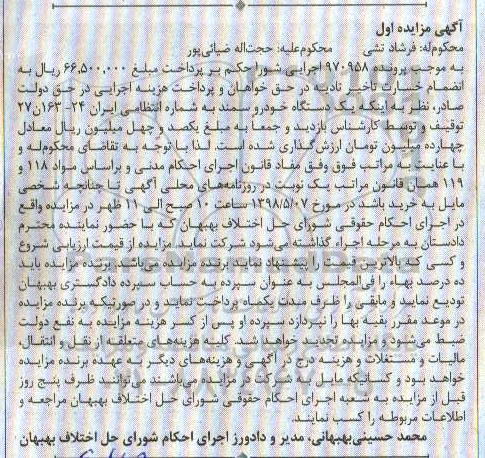 آگهی مزایده اول
محکوم‌له: فرشاد تشی محکوم‌علیه: حجت‌اله ضیائی‌پور
به موجب پرونده ۹۷۰۹۵۸ اجرایی شورا حکم بر پرداخت مبلغ ۶۶,۵۰۰,۰۰۰ ریال به
انضمام خسارت تأخیر تادیه در حق خواهان و پرداخت هزینه اجرایی در حق دولت
صادر، نظر به اینکه یک دستگاه خودرو سمند به شماره انتظامی ایران ۲۴- ۱۶۳ن۲۷
توقیف و توسط کارشناس بازدید و جمعاً به مبلغ یکصد و چهل میلیون ریال معادل
چهارده میلیون تومان ارزش‌گذاری شده است. لذا با توجه به تقاضای محکوم‌له و
با عنایت به مراتب فوق وفق مفاد قانون اجرای احکام مدنی و براساس مواد ۱۱۸ و
۱۱۹ همان قانون مراتب یک نوبت در روزنامه‌های محلی آگهی تا چنانچه شخصی
مایل به خرید باشد در مورخ ۱۳۹۸/۵/۰۷ ساعت ۱۰ صبح الی ۱۱ ظهر در مزایده واقع
در اجرای احکام حقوقی شورای حل اختلاف بهبهان که با حضور نماینده محترم
دادستان به مرحله اجراء گذاشته می‌شود شرکت نماید. مزایده از قیمت ارزیابی شروع
و کسی که بالاترین قیمت را پیشنهاد نماید برنده مزایده می‌باشد. برنده مزایده باید
ده درصد بهاء را فی‌المجلس به عنوان سپرده به حساب سپرده دادگستری بهبهان
تودیع نمایید و مابقی را ظرف مدت یکماه پرداخت نمایند و درصورتیکه برنده مزایده
در موعد مقرر بقیه بها را نپردازد سپرده او پس از کسر هزینه مزایده به نفع دولت
ضبط می‌شود و مزایده تجدید خواهد شد. کلیه هزینه‌های متعلقه از نقل و انتقال،
مالیات و مستغلات و هزینه درج در آگهی و هزینه‌های دیگر به عهده برنده مزایده
خواهد بود و کسانیکه مایل به شرکت در مزایده می‌باشند می‌توانند ظرف پنج روز
قبل از مزایده به شعبه اجرای احکام حقوقی شورای حل اختلاف بهبهان مراجعه و
اطلاعات مربوطه را کسب نمایند.
محمد حسینی‌بهبهانی، مدیر و دادورز اجرای احکام شورای حل اختلاف بهبهان